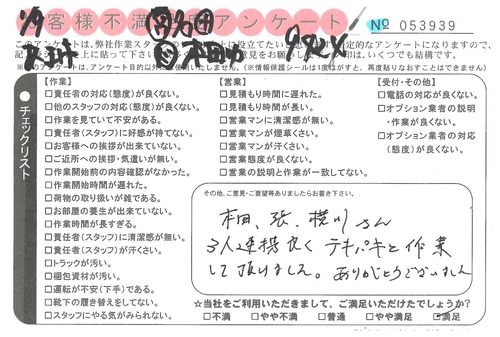 お客様不満 アンケート № 053939
このアンケートは、弊社作業スタ に役立てたい 定的なアンケートになりますので、
上に貼って下さい。 意見をお願い は、いくつでも結構です。
アンケート目的以外 いたしません。(※情報保護シールは1度はがすと、再度貼りなおすことはできません)
チェックリスト
【作業】
□責任者の対応(態度)が良くない。
□他のスタッフの対応(態度)が良くない。
□作業を見ていて不安がある。
□責任者(スタッフ)に好感が持てない。
□お客様への挨拶が出来ていない。
□ご近所への挨拶・気遣いが無い。
□作業開始前の内容確認がなかった。
□作業開始時間が遅れた。
□荷物の取り扱いが雑である。
□お部屋の養生が出来ていない。
□作業時間が長すぎる。
□責任者(スタッフ)に清潔感が無い。
□責任者(スタッフ)が汗くさい。
□トラックが汚い。
□梱包資材が汚い。
□運転が不安(下手)である。
□靴下の履き替えをしてない。
□スタッフにやる気がみられない。
【営業】
□見積もり時間に遅れた。
□見積もり時間が長い。
□営業マンに清潔感が無い。
□営業マンが煙草くさい。
□営業マンが汗くさい。
□営業態度が良くない。
□営業の説明と作業が一致してない。
【受付・その他】
□電話の対応が良くない。
□オプション業者の説明
・作業が良くない。
□オプション業者の対応
(態度)が良くない。
その他、ご意見・ご要望等ありましたらお書き下さい。
本田、張、横川さん
3人連携良く テキパキと作業
して頂けました。ありがとうございました
☆当社をご利用いただきまして、ご満足いただけたでしょうか?
□不満 □やや不満 □普通 □やや満足 □満足